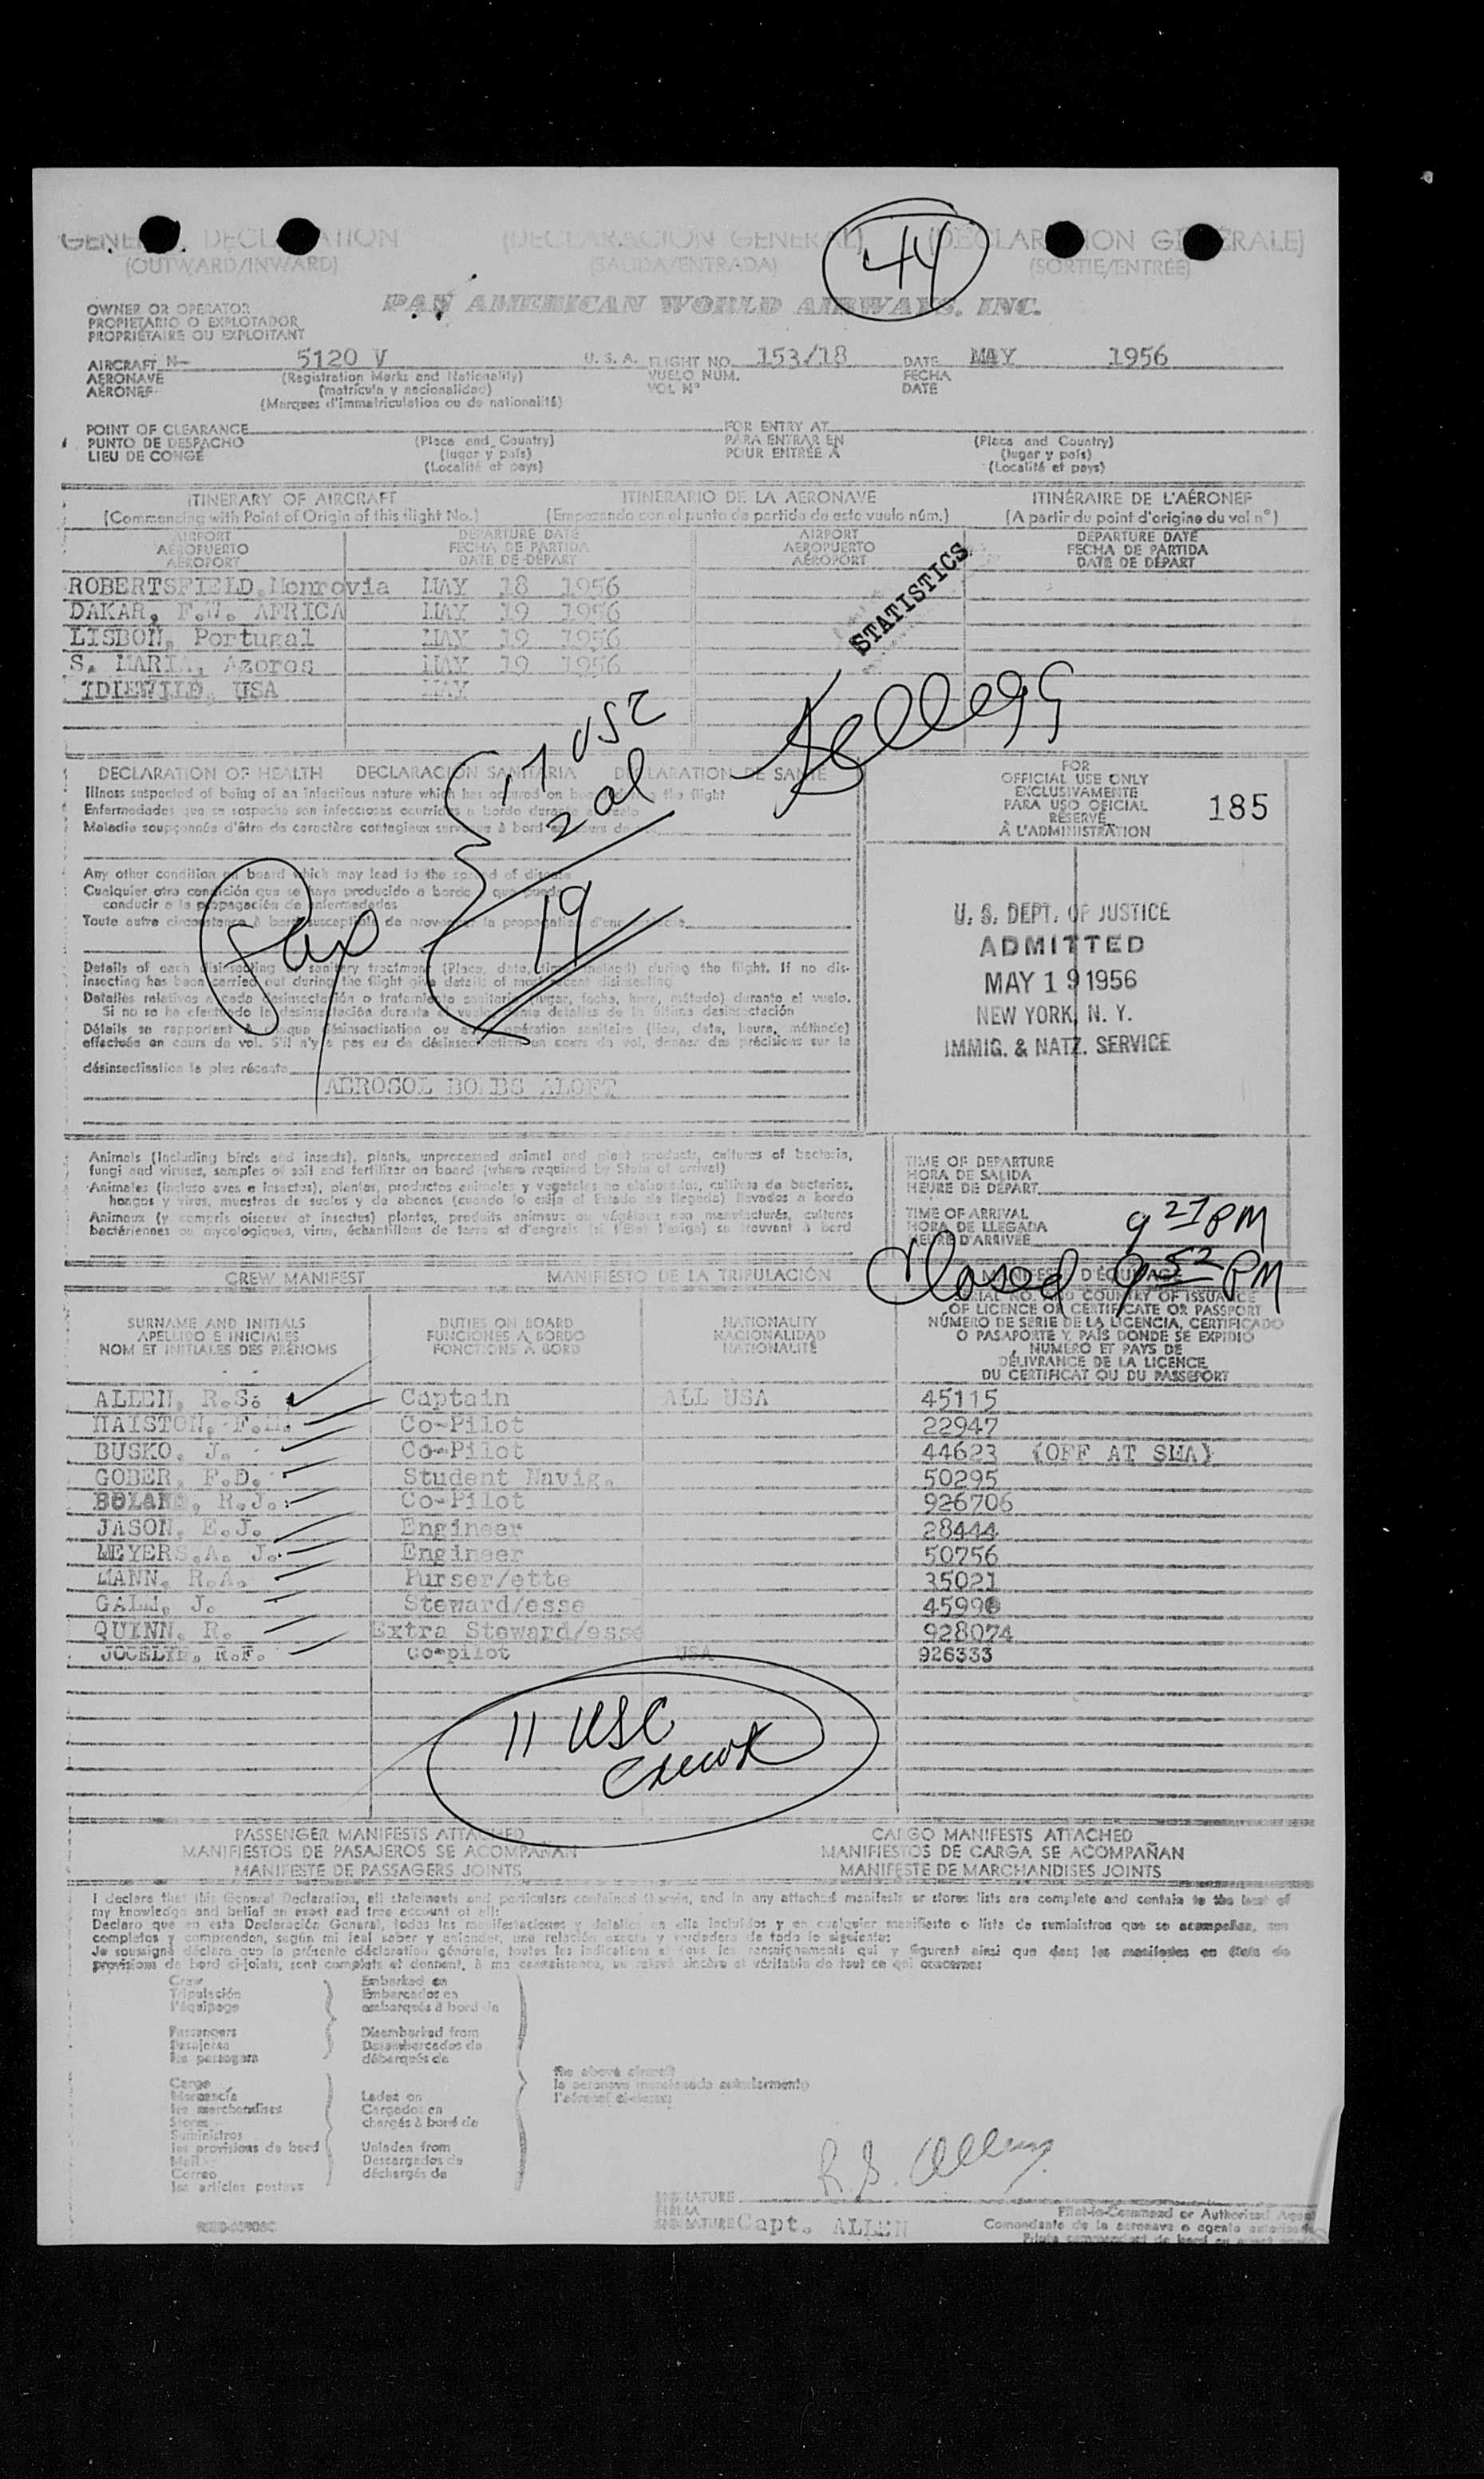 44
GENE DECL ATION (DECLARACIÓN GENERAL) (DÉCLAR ION GÉ ÉRALE)
(OUTWARD/INWARD) (SALIDA/ENTRADA) (SORTIE/ENTRÉE)
OWNER OR OPERATOR PAN AMERICAN WORLD AIRWAYS, INC.
PROPIETARIO O EXPLOTADOR
PROPRIÉTAIRE OU EXPLOITANT
AIRCRAFT N- 5120 V U. S. A. FLIGHT NO. 153/18 DATE MAY 1956
AERONAVE (Registration Marks and Nationality) VUELO NUM. FECHA
AÉRONEF (matrícula y nacionalidad) VOL Nº DATE
(Marques d'immatriculation ou de nationalité)
POINT OF CLEARANCE FOR ENTRY AT
PUNTO DE DESPACHO (Place and Country) PARA ENTRAR EN (Place and Country)
LIEU DE CONGÉ (lugar y país) POUR ENTRÉE À (lugar y país)
(Localité et pays) (Localité et pays)
ITINERARY OF AIRCRAFT ITINERARIO DE LA AERONAVE ITINÉRAIRE DE L'AÉRONEF
(Commencing with Point of Origin of this flight No.) (Empezando con el punto de partida de este vuelo núm.) (A partir du point d'origine du vol n°)
AIRPORT DEPARTURE DATE AIRPORT DEPARTURE DATE
AEROPUERTO FECHA DE PARTIDA AEROPUERTO FECHA DE PARTIDA
AÉROPORT DATE DE DÉPART AÉROPORT DATE DE DÉPART
ROBERTSFIELD,Monrovia MAY 18 1956
DAKAR, F.W. AFRICA MAY 19 1956
LISBON, Portugal MAY 19 1956
S. MARIA, Azores MAY 19 1956
IDLEWILD, USA MAY
STATISTICS
Kellogg
17 USC
2 al
19
Pax
DECLARATION OF HEALTH DECLARACIÓN SANITARIA DÉCLARATION DE SANTÉ
Illness suspected of being of an infectious nature which has occured on board during the flight
Enfermedades que se sospecha son infecciosas ocurridas a bordo durante el vuelo
Maladie soupçonnée d'être de caractère contagieux survenue à bord au cours du
Any other condition on board which may lead to the spread of disease
Cualquier otra condición que se haya producido a bordo y que puede
conducir a la propagación de enfermedades
Toute autre circonstance à bord susceptible de provoquer la propagation d'une maladie
Details of each disinsecting or sanitary treatment (Place, date, time, method) during the flight. If no disinsecting has been carried out during the flight give details of most recent disinsecting
Detalles relativos a cada desinsectación o tratamiento sanitario (lugar, fecha, hora, método) durante el vuelo.
Si no se ha efectuado la desinsectación durante el vuelo detalles de la última desinsectación
Détails se rapportant à chaque désinsectisation ou opération sanitaire (lieu, date, heure, méthode)
effectuée en cours de vol. S'il n'y a pas eu de désinsectisation en cours de vol, donner des précisions sur la
désinsectisation la plus récente
AEROSOL BOMBS ALOFT
FOR
OFFICIAL USE ONLY
EXCLUSIVAMENTE
PARA USO OFICIAL 185
RÉSERVÉ
À L'ADMINISTRATION
U. S. DEPT. OF JUSTICE
ADMITTED
MAY 19 1956
NEW YORK, N. Y.
IMMIG. & NATZ. SERVICE
Animals (Including birds and insects), plants, unprocessed animal and plant products, cultures of bacteria,
fungi and viruses, samples of soil and fertilizer on board (where required by State of arrival)
Animales (incluso aves e insectos), plantas, productos animales y vegetales no elaborados, cultivos de bacterias,
hongos y virus, muestras de suelos y de abonos (cuando lo exija el Estado de llegada) llevados a bordo
Animaux (y compris oiseaux et insectes) plantes, produits animaux ou végétaux non manufacturés, cultures
bactériennes ou mycologiques, virus, échantillons de terre et d'engrais (si l'État l'exige) se trouvant à bord
TIME OF DEPARTURE
HORA DE SALIDA
HEURE DE DÉPART
TIME OF ARRIVAL
HORA DE LLEGADA 9 27 PM
HEURE D'ARRIVÉE
Closed 9 52 PM
CREW MANIFEST MANIFIESTO DE LA TRIPULACIÓN MANIFESTE D'ÉQUIPAGE
SURNAME AND INITIALS DUTIES ON BOARD NATIONALITY SERIAL NO. AND COUNTRY OF ISSUANCE
APELLIDO E INICIALES FUNCIONES A BORDO NACIONALIDAD OF LICENCE OR CERTIFICATE OR PASSPORT
NOM ET INITIALES DES PRÉNOMS FONCTIONS À BORD NATIONALITÉ NÚMERO DE SERIE DE LA LICENCIA, CERTIFICADO
O PASAPORTE Y PAÍS DONDE SE EXPIDIÓ
NUMÉRO ET PAYS DE
DÉLIVRANCE DE LA LICENCE
DU CERTIFICAT OU DU PASSEPORT
ALLEN, R.S. Captain ALL USA 45115
HAISTON, F.M. Co-Pilot 22947
BUSKO, J. Co-Pilot 44623 (OFF AT SMA)
GOBER, F.D. Student Navig. 50295
BOLAND, R.J. Co-Pilot 926706
JASON, E.J. Engineer 28444
MEYERS,A. J. Engineer 50756
MANN, R.A. Purser/ette 35021
GALL, J. Steward/esse 45998
QUINN, R. Extra Steward/esse 928074
JOCELYN, R.F. Co-pilot USA 926333
11 USC
crew
PASSENGER MANIFESTS ATTACHED CARGO MANIFESTS ATTACHED
MANIFIESTOS DE PASAJEROS SE ACOMPAÑAN MANIFIESTOS DE CARGA SE ACOMPAÑAN
MANIFESTE DE PASSAGERS JOINTS MANIFESTE DE MARCHANDISES JOINTS
I declare that this General Declaration, all statements and particulars contained therein, and in any attached manifests or stores lists are complete and contain to the best of
my knowledge and belief an exact and true account of all:
Declaro que en esta Declaración General, todas las manifestaciones y detalles en ella incluidos y en cualquier manifiesto o lista de suministros que se acompañan, son
completos y comprenden, según mi leal saber y entender, una relación exacta y verdadera de todo lo siguiente:
Je soussigné déclare que la présente déclaration générale, toutes les indications et tous les renseignements qui y figurent ainsi que dans les manifestes en états de
provisions de bord ci-joints, sont complets et donnent, à ma connaissance, un relevé sincère et véritable de tout ce qui concerne:
Crew Embarked on
Tripulación Embarcados en
l'équipage embarqués à bord de
Passengers Disembarked from
Pasajeros Desembarcados de
les passagers débarqués de
The above aircraft
la aeronave mencionada anteriormente
l'aéronef ci-dessus
Cargo
Mercancía Laden on
les marchandises Cargados en
Stores chargés à bord de
Suministros
les provisions de bord Unladen from
Mail Descargados de
Correo déchargés de
les articles postaux
R.S. Allen
SIGNATURE
FIRMA Pilot-in-Command or Authorized Agent
SIGNATURE Capt. ALLEN Comandante de la aeronave o agente autorizado